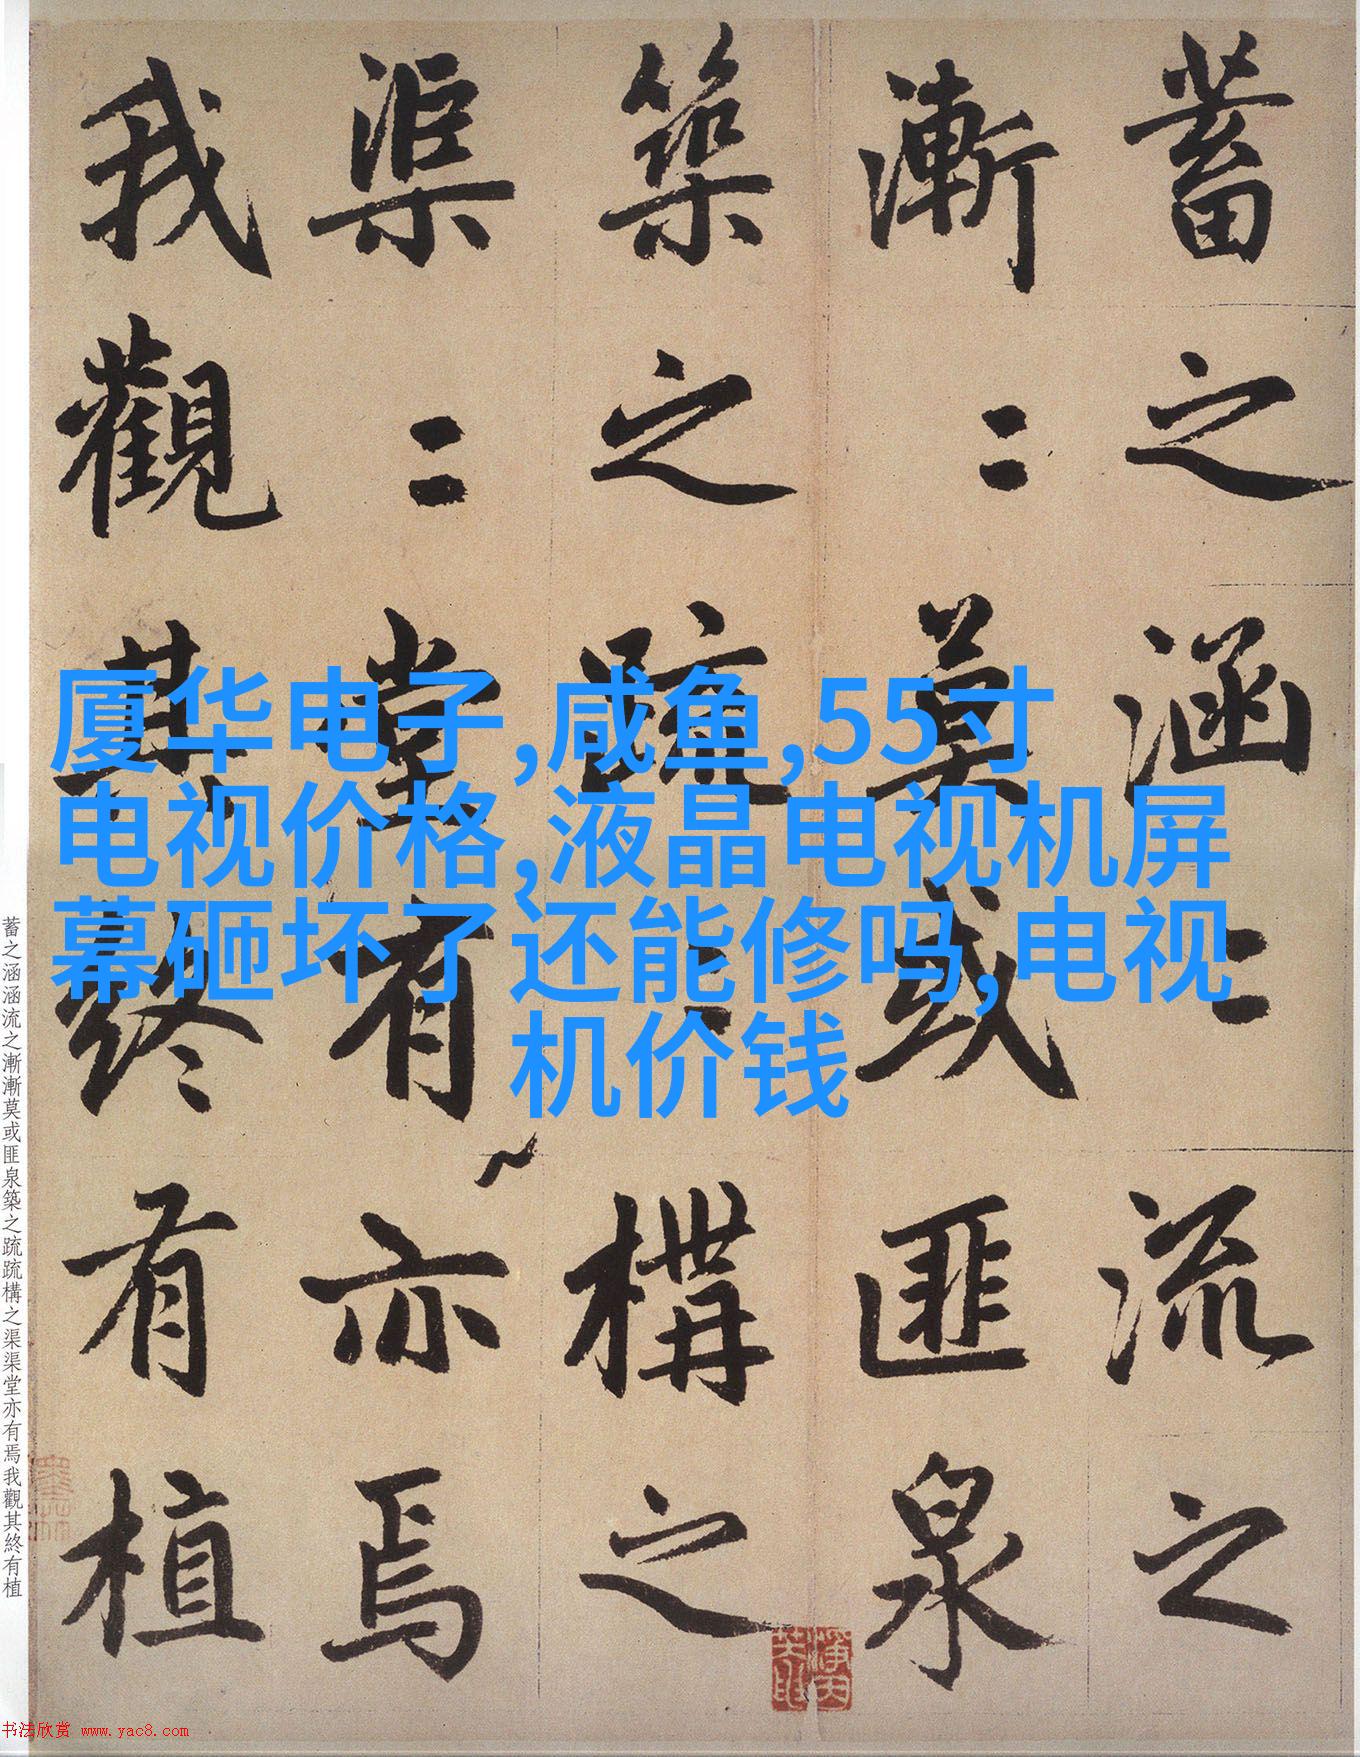 蓄之涵涵流之
漸漸莫或匪泉
築之疏疏構之
渠渠堂有亦焉
我觀其終有植
厦华电子,咸鱼,55寸
电视价格,液晶电视机屏
幕砸坏了还能修吗,电视
机价钱
蓄之涵涵流之漸漸莫或匪泉築之疏疏構之渠渠堂亦有焉我觀其終有植
书法欣赏 www.yac8.com